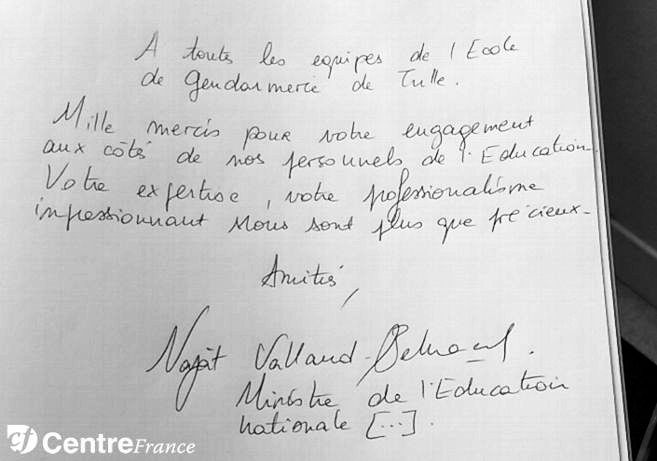 A toutes les equipes de l'Ecole
de Gendarmerie de Tulle.
Mille mercis pour votre engagement
aux côtés de nos personnels de l'Education.
Votre expertise, votre professionalisme
impressionnant nous sont plus que précieux.
Amitiés,
Najat Vallaud-Belkacem.
Ministre de l'Education
nationale [...].
cf CentreFrance